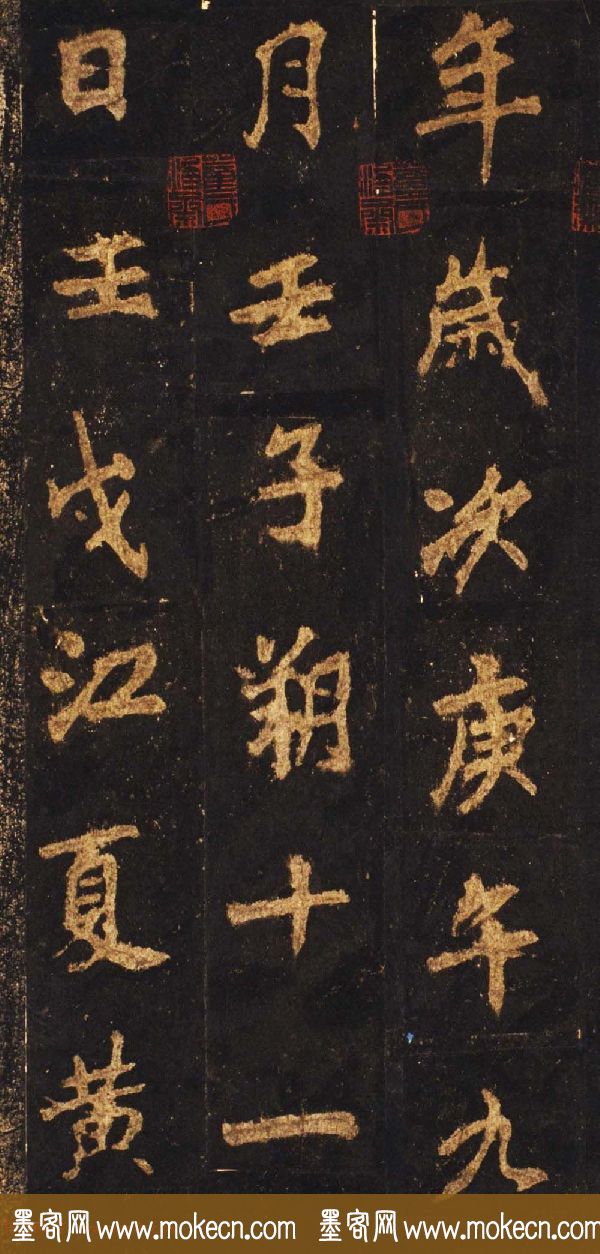 年歲次庚午九
月壬子朔十一
日壬戌江夏黃
墨客网 www.mokecn.com 墨客网 www.mokecn.com